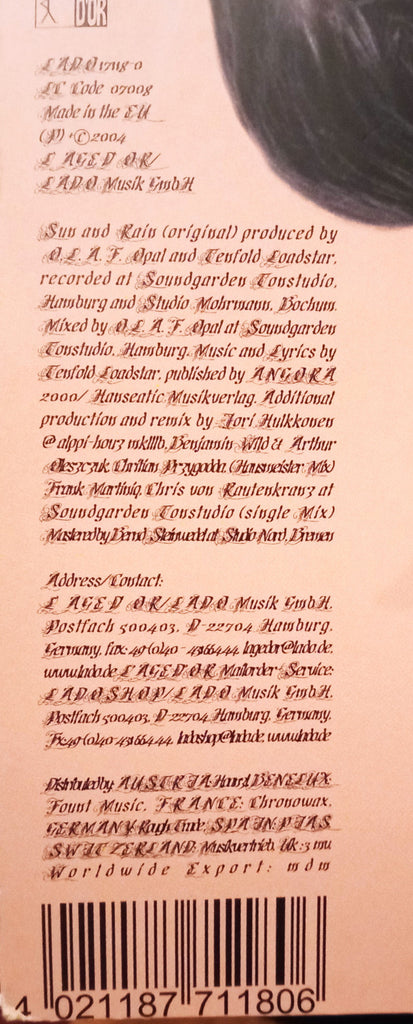 D'OR
LADO 17118-0
LC Code 07008
Made in the EU
(P) + © 2004
L'AGE D'OR/
LADO Musik GmbH
Sun and Rain (original) produced by
O.L.A.F. Opal and Tenfold Loadstar,
recorded at Soundgarden Tonstudio,
Hamburg and Studio Mohrmann, Bochum.
Mixed by O.L.A.F. Opal at Soundgarden
Tonstudio, Hamburg. Music and Lyrics by
Tenfold Loadstar, published by ANGORA
2000/ Hanseatic Musikverlag. Additional
production and remix by Jori Hulkkonen
@ alppi-hour mkIIIb, Benjamin Wild & Arthur
Oleszczuk, Christian Przygodda, (Hausmeister Mix)
Frank Martiniq, Chris von Rautenkranz at
Soundgarden Tonstudio (single Mix)
Mastered by Bernd Steinwedel at Studio Nord, Bremen
Address/Contact:
L'AGE D'OR/LADO Musik GmbH,
Postfach 500403, D-22704 Hamburg,
Germany, fax: 49 (0)40 - 43166444, lagedor@lado.de,
www.lado.de L'AGE D'OR Mailorder Service:
LADOSHOP/LADO Musik GmbH,
Postfach 500403, D-22704 Hamburg, Germany,
Fx:49-(0)40-43166444, ladoshop@lado.de, www.lado.de
Distributed by: AUSTRIA: Hoanzl, BENELUX:
Fount Music, FRANCE: Chronowax,
GERMANY: Rough Trade, SPAIN: PIAS
SWITZERLAND: Musikvertrieb, Uk: 3 mv
Worldwide Export: mdm
4 021187 711806